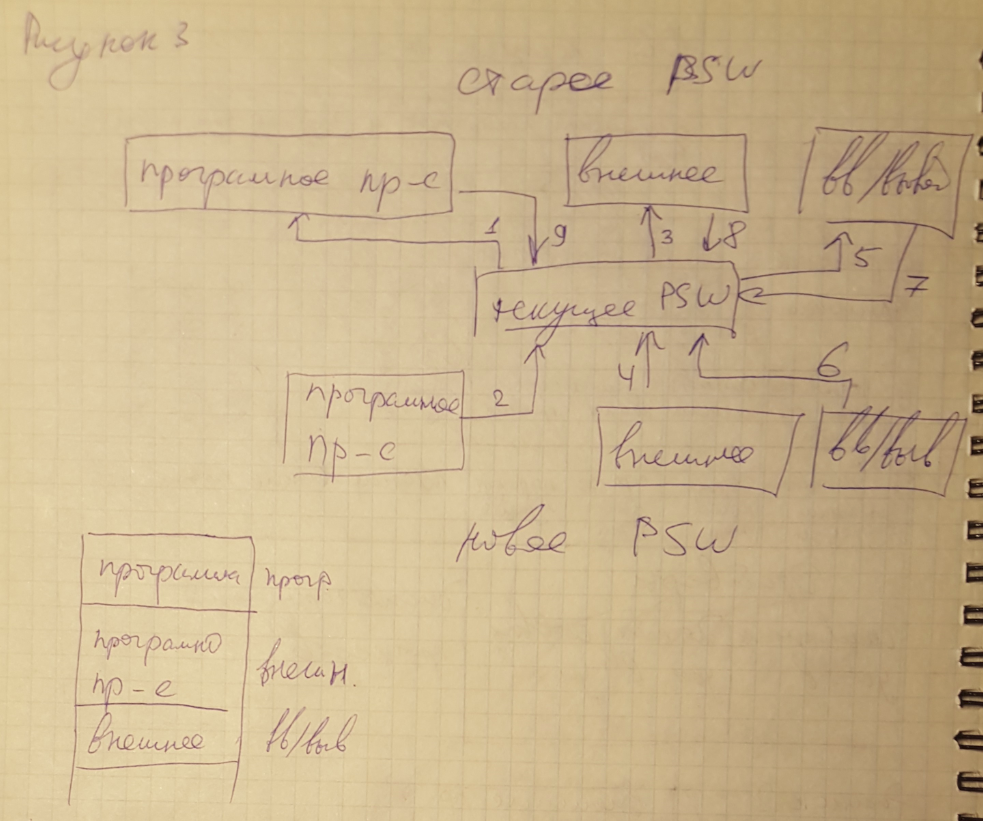 Рисунок 3
старое PSW
програмное пр-е
внешнее
вв/вывод
1
9
3
8
5
7
текущее PSW
2
4
6
програмное
пр-е
внешнее
вв/выв
новое PSW
программа
прогр.
програмно
пр-е
внешн.
внешнее
вв/выв